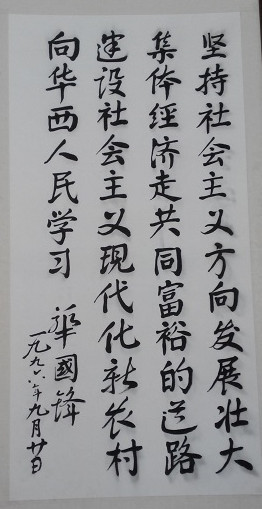 坚持社会主义方向发展壮大
集体经济走共同富裕的道路
建设社会主义现代化新农村
向华西人民学习
華國鋒
一九九六年九月廿日